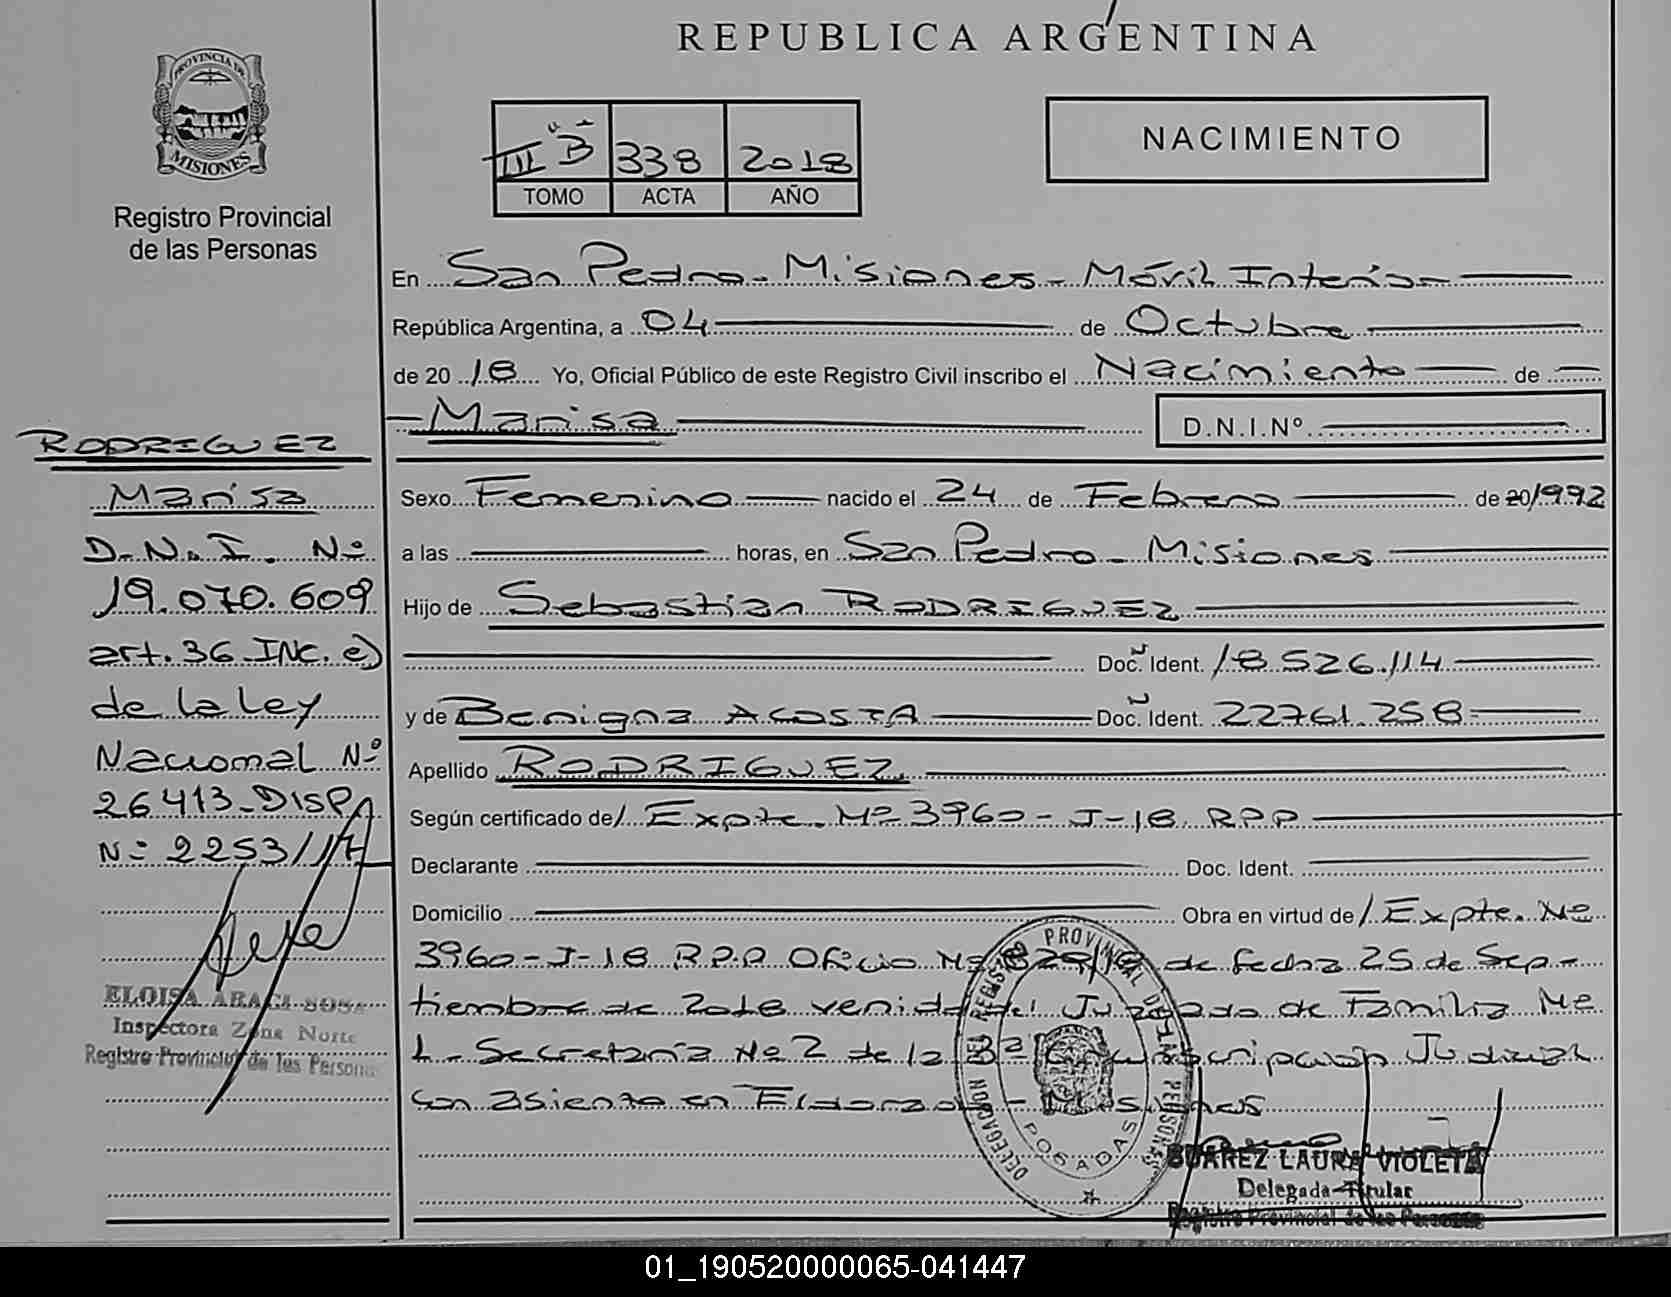 REPUBLICA ARGENTINA
PROVINCIA DE
MISIONES
Registro Provincial
de las Personas
III "B" 338 2018
TOMO ACTA AÑO
NACIMIENTO
En San Pedro - Misiones - Móvil Interior
República Argentina, a 04 de Octubre
de 20 18 Yo, Oficial Público de este Registro Civil inscribo el Nacimiento de
Marisa D.N.I.Nº
Sexo Femenino nacido el 24 de Febrero de 20 1992
a las horas, en San Pedro - Misiones
Hijo de Sebastian RODRIGUEZ
Doc. Ident. 18.526.114
y de Benigna ACOSTA Doc. Ident. 22761.258
Apellido RODRIGUEZ
Según certificado de/ Expte. Nº 3960-J-18 RPP
Declarante Doc. Ident.
Domicilio Obra en virtud de / Expte. Nº
3960-J-18 R.P.P Oficio Nº de fecha 25 de Sep-
tiembre de 2018 venido del Juzgado de Familia Nº
1 - Secretaría Nº 2 de la 3ª Circunscripción Judicial
con asiento en Eldorado - Misiones
RODRIGUEZ
Marisa
D.N.I. Nº
19.070.609
art. 36 INC. e)
de la Ley
Nacional Nº
26413-DISP.
Nº 2253/17
ELOISA ARACI SOSA
Inspectora Zona Norte
Registro Provincial de las Personas
DELEGACION DEL REGISTRO PROVINCIAL DE LAS PERSONAS
POSADAS
SUAREZ LAURA VIOLETA
Delegada Titular
Registro Provincial de las Personas
01_190520000065-041447